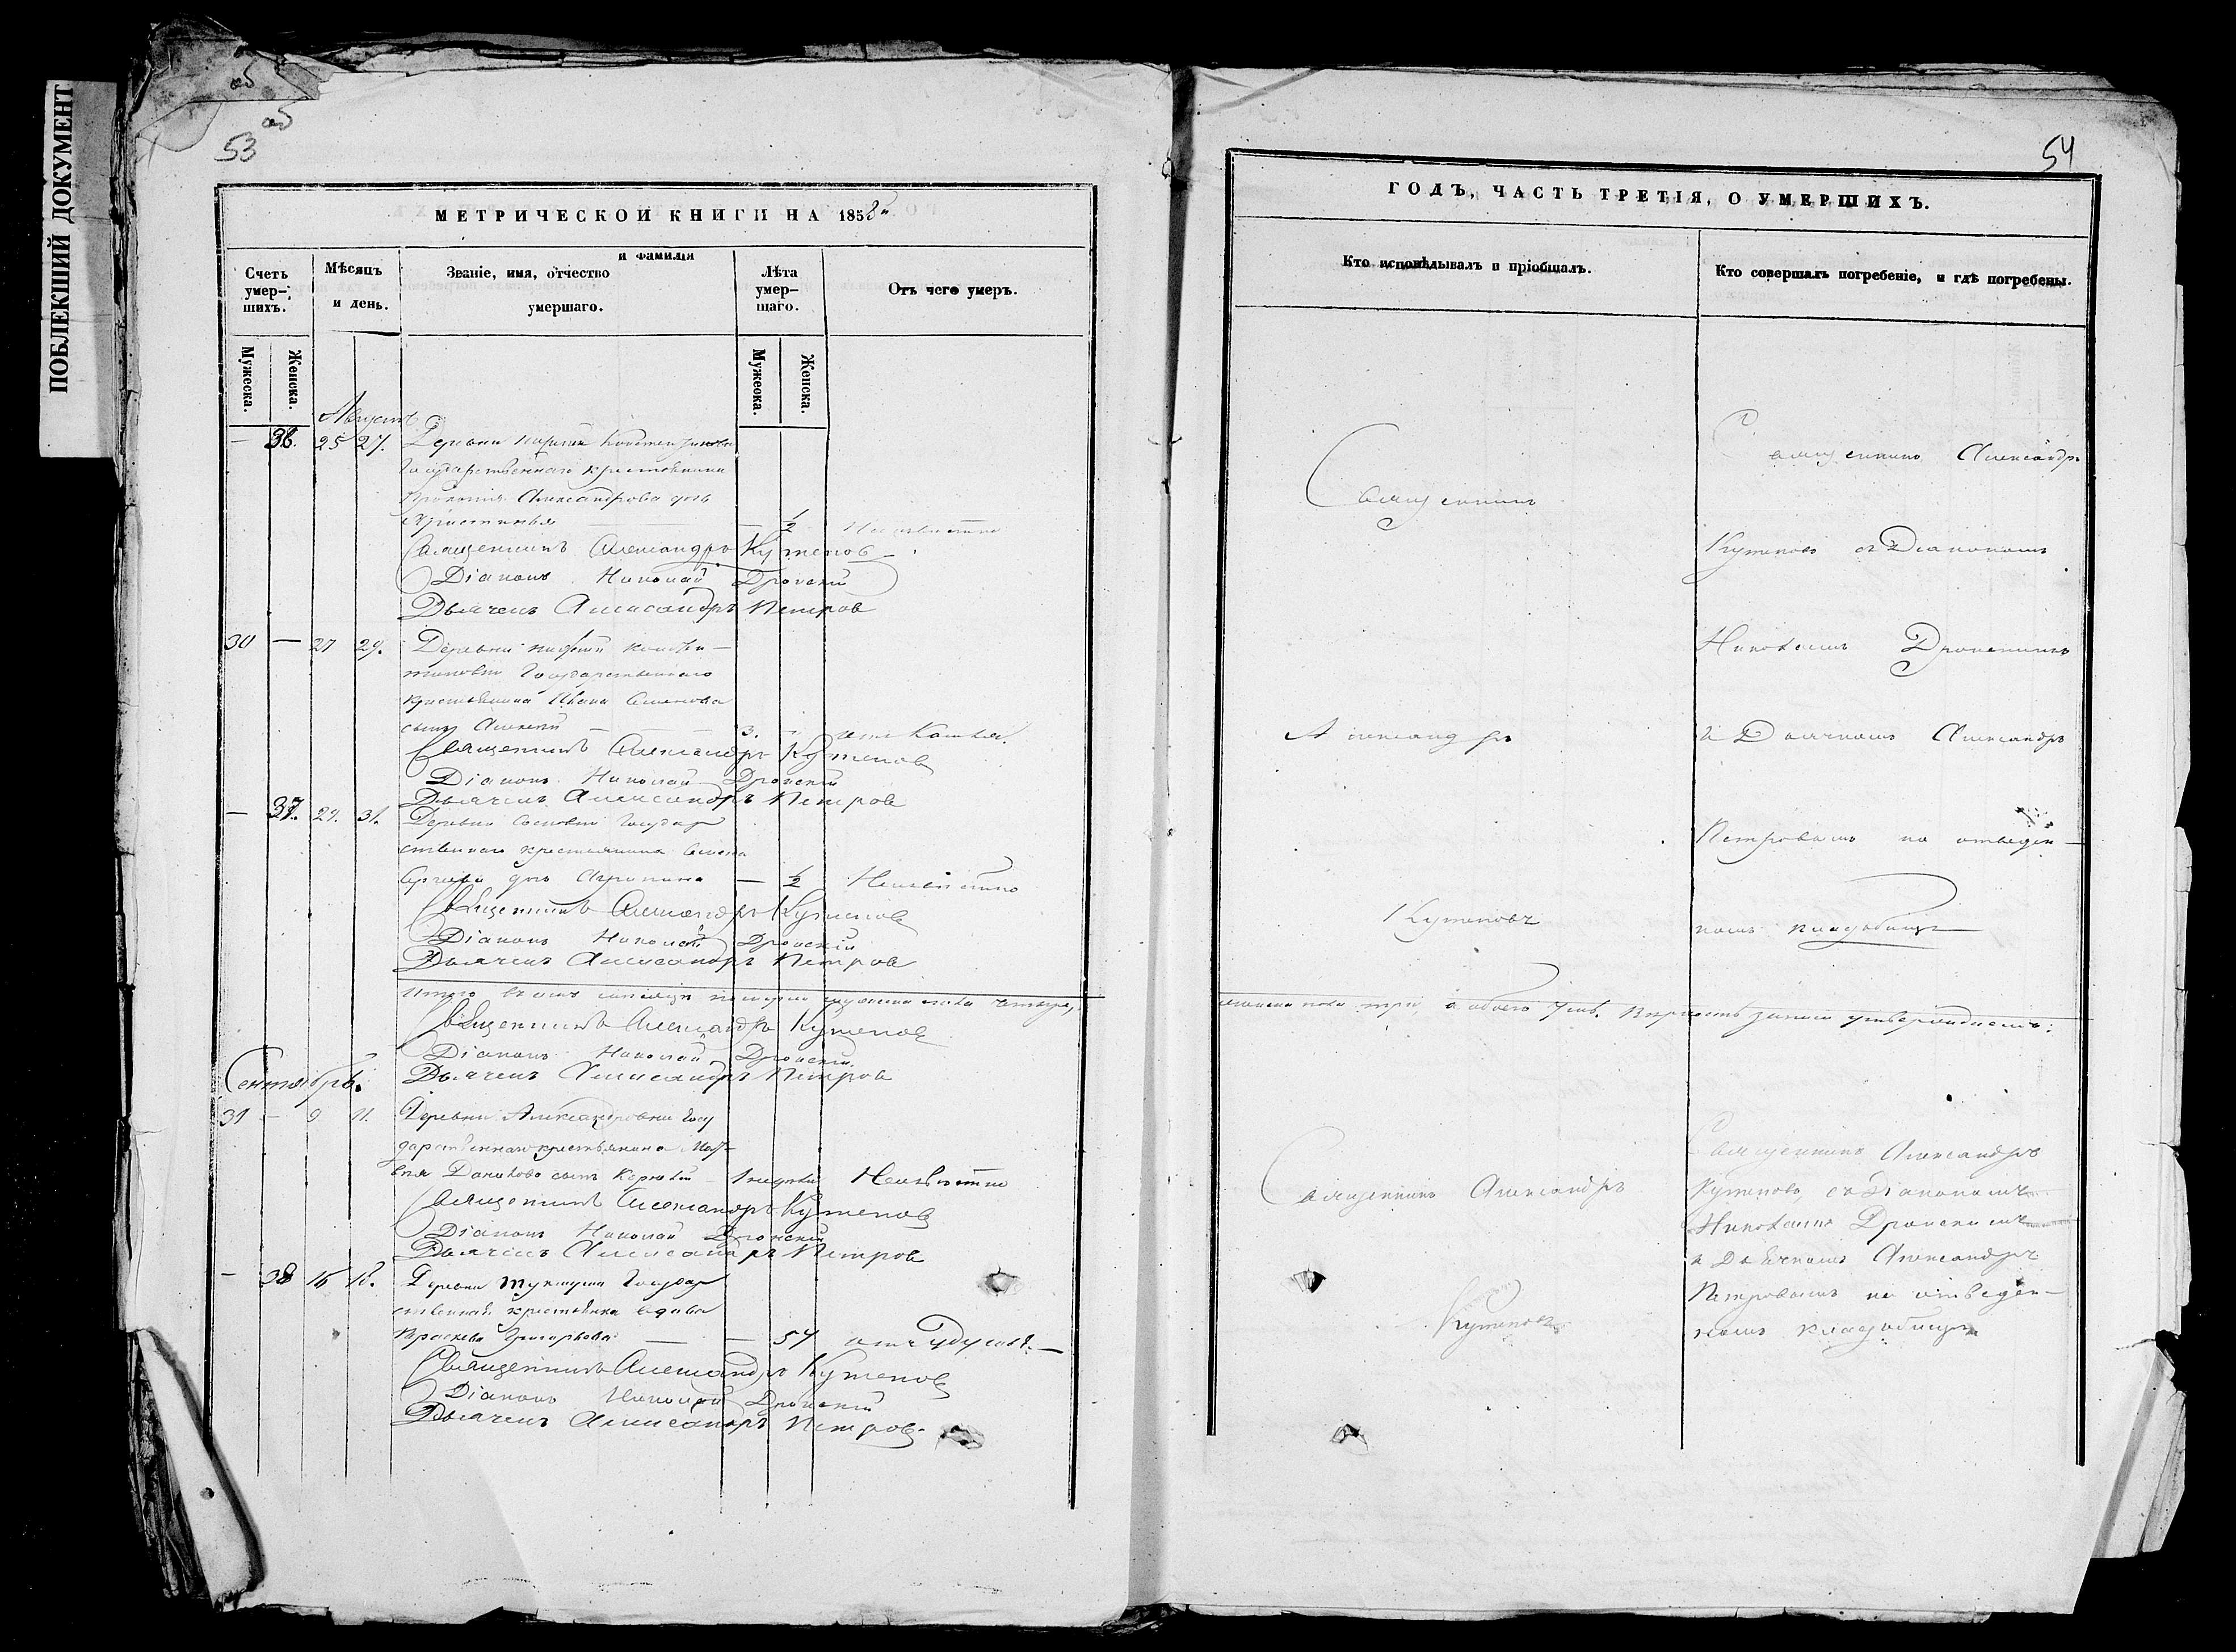 ПОБЛЕКШИЙ ДОКУМЕНТ
об
об
53
МЕТРИЧЕСКОЙ КНИГИ НА 1858й
Счетъ умер-шихъ.
Мѣсяцъ и день.
Званіе, имя, отчество и фамилія умершаго.
Лѣта умер-шаго.
Отъ чего умеръ.
Мужеска.
Женска.
Мужеска.
Женска.
Августъ
— 36. 25 27. Деревни
Государственнаго крестьянина
Прокопія Александрова дочь
Христинья — — 1/2 Неизвѣстно
Священникъ Александръ Кутеповъ
Діаконъ Николай Дронскій
Дьячекъ Александръ Петровъ
30 — 27 29. Деревни
Государственнаго
крестьянина Ивана Семенова
сынъ Алексей — 3. — отъ Кашля.
Священникъ Александръ Кутеповъ
Діаконъ Николай Дронскій
Дьячекъ Александръ Петровъ
— 37. 29. 31. Деревни Сосновки Государ
ственнаго крестьянина
дочь — 1/2 Неизвѣстно
Священникъ Александръ Кутеповъ
Діаконъ Николай Дронскій
Дьячекъ Александръ Петровъ
Итого въ семъ мѣсяцѣ померло мужеска пола четыре,
Священникъ Александръ Кутеповъ
Діаконъ Николай Дронскій
Дьячекъ Александръ Петровъ
Сентябрь.
31 — 9 11. Деревни Александровки Госу
дарственнаго крестьянина Мат-
вея Данилова сынъ Корнилій 1 недѣли Неизвѣстно
Священникъ Александръ Кутеповъ
Діаконъ Николай Дронскій
Дьячекъ Александръ Петровъ
— 38 16 18. Деревни Государ
ственная крестьянка вдова
Праскева Григорьева — — 54 отъ удушья.—
Священникъ Александръ Кутеповъ
Діаконъ Николай Дронскій
Дьячекъ Александръ Петровъ.
54
ГОДЪ, ЧАСТЬ ТРЕТІЯ, О УМЕРШИХЪ.
Кто исповѣдывалъ и пріобщалъ.
Кто совершалъ погребеніе, и гдѣ погребены.
Священникъ
Александръ
Кутеповъ
Священникъ Александръ
Кутеповъ съ Діакономъ
Николаемъ Дронскимъ
и Дьячкомъ Александръ
Петровымъ на отведен—
номъ кладбищѣ
женска пола три, а обоего 7мь. Вѣрность записи утверждаемъ:
Священникъ Александръ
Кутеповъ
Священникъ Александръ
Кутеповъ, съ Діакономъ
Николаемъ Дронскимъ
и Дьячкомъ Александръ
Петровымъ на отведен—
номъ кладбищѣ